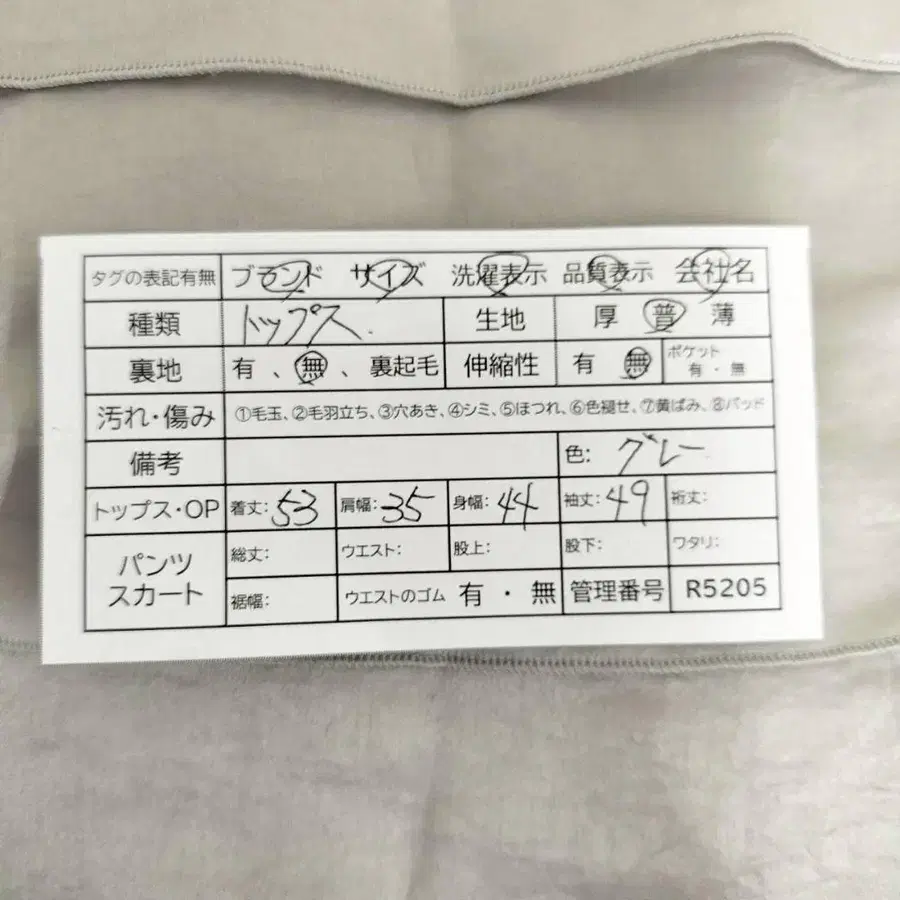 タグの表記有無 ブランド サイズ 洗濯表示 品質表示 会社名
種類 トップス. 生地 厚 普 薄
裏地 有 、無 、裏起毛 伸縮性 有 無 ポケット 有・無
汚れ・傷み ①毛玉、②毛羽立ち、③穴あき、④シミ、⑤ほつれ、⑥色褪せ、⑦黄ばみ、⑧パッド
備考 色: グレー
トップス・OP 着丈:53 肩幅:35 身幅:44 袖丈:49 裄丈:
パンツ スカート 総丈: ウエスト: 股上: 股下: ワタリ:
裾幅: ウエストのゴム 有 ・ 無 管理番号 R5205